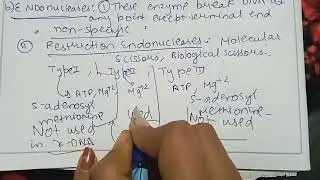 b) ENDONUCLEASES: ① These enzyme break DNA at
any point except terminal end
non-specific.
Restriction Endonucleases: Molecular
scissors, Biological scissors.
Type I, Type II Type III
ATP, Mg+2 Mg+2 ATP, Mg+2
s-adenosyl s-adenosyl
methionine methionine
Not used used Not used
in r-DNA